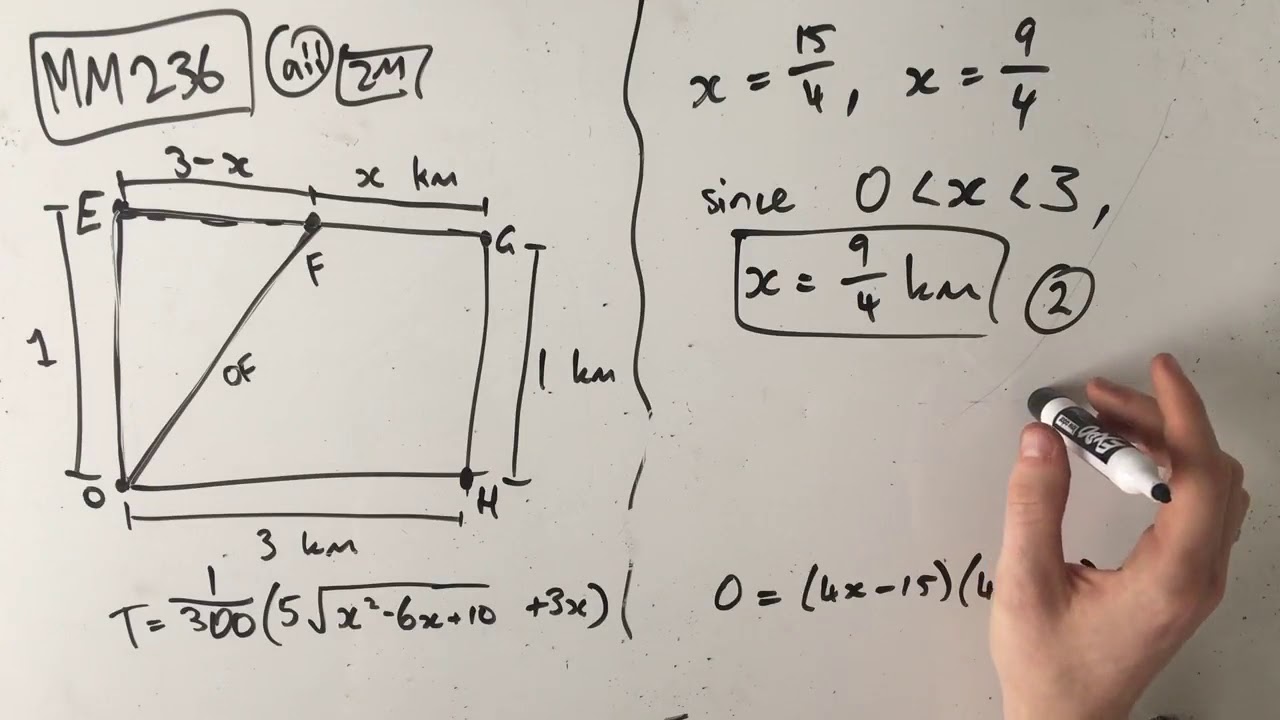 MM236 aii 2M
3-x x km
E
F
G
1
OF
1 km
O
H
3 km
T = 1/300 (5√x²-6x+10 +3x)
x = 15/4, x = 9/4
since 0 < x < 3,
x = 9/4 km 2
EXPO
0 = (4x-15)(4